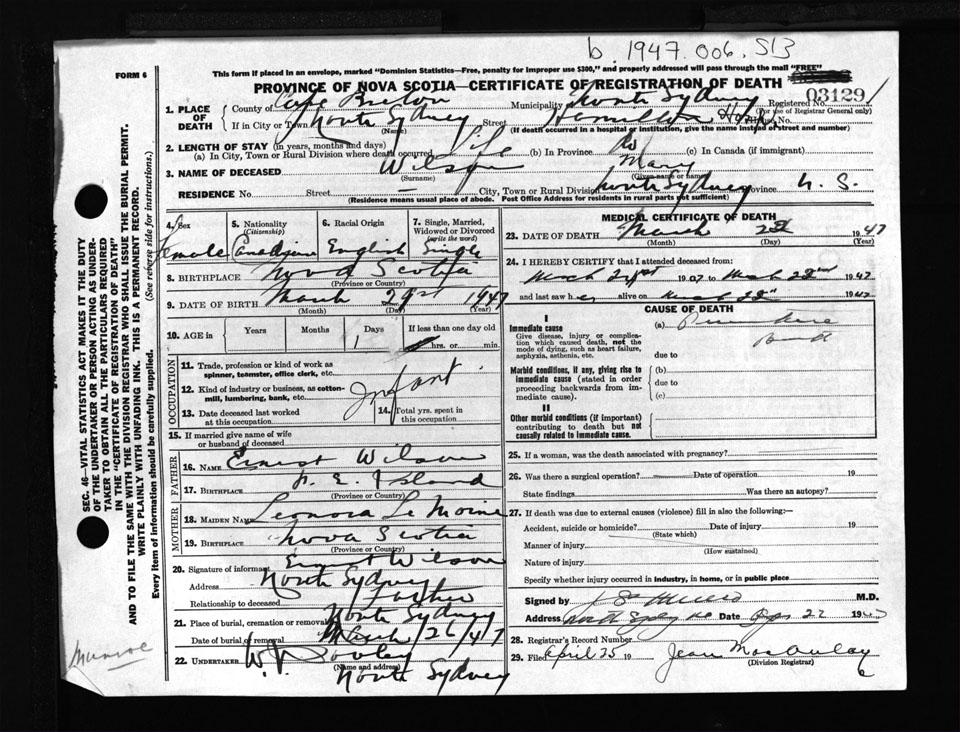 b. 1947. 006. 513
FORM 6
This form if placed in an envelope, marked "Dominion Statistics—Free, penalty for improper use $300," and properly addressed will pass through the mail "FREE"
PROVINCE OF NOVA SCOTIA—CERTIFICATE OF REGISTRATION OF DEATH
03129
1. PLACE OF DEATH
County of Cape Breton Municipality North Sydney Registered No.
(For use of Registrar General only)
If in City or Town North Sydney Street Hamilton Hosp. No.
(Name) (If death occurred in a hospital or institution, give the name instead of street and number)
2. LENGTH OF STAY (in years, months and days)
(a) In City, Town or Rural Division where death occurred Life (b) In Province (c) In Canada (if immigrant)
3. NAME OF DECEASED Wilson Mary
(Surname) (Given name or names)
RESIDENCE No. Street — City, Town or Rural Division North Sydney Province N. S.
(Residence means usual place of abode. Post Office Address for residents in rural parts not sufficient)
4. Sex Female
5. Nationality (Citizenship) Canadian
6. Racial Origin English
7. Single, Married, Widowed or Divorced (write the word) Single
8. BIRTHPLACE Nova Scotia
(Province or Country)
9. DATE OF BIRTH March 21st 1947
(Month) (Day) (Year)
10. AGE in Years Months Days 1 If less than one day old hrs. or min.
OCCUPATION
11. Trade, profession or kind of work as spinner, teamster, office clerk, etc.
12. Kind of industry or business, as cotton-mill, lumbering, bank, etc.
Infant
13. Date deceased last worked at this occupation
14. Total yrs. spent in this occupation
15. If married give name of wife or husband of deceased
FATHER
16. NAME Ernest Wilson
17. BIRTHPLACE P. E. Island
(Province or Country)
MOTHER
18. MAIDEN NAME Leonora Le Moine
19. BIRTHPLACE Nova Scotia
(Province or Country)
20. Signature of informant Ernest Wilson
Address North Sydney
Relationship to deceased Father
21. Place of burial, cremation or removal North Sydney
Date of burial or removal March 26/47
22. UNDERTAKER W.J. Dooley
(Name and address)
North Sydney
MEDICAL CERTIFICATE OF DEATH
23. DATE OF DEATH March 22d 1947
(Month) (Day) (Year)
24. I HEREBY CERTIFY that I attended deceased from:
March 21st 1947 to March 22nd 1947
and last saw her alive on March 22nd 1947
CAUSE OF DEATH
I
Immediate cause
Give disease, injury or complication which caused death, not the mode of dying, such as heart failure, asphyxia, asthenia, etc.
(a) Premature
Birth
due to
Morbid conditions, if any, giving rise to immediate cause (stated in order proceeding backwards from immediate cause).
(b)
due to
(c)
II
Other morbid conditions (if important) contributing to death but not causally related to immediate cause.
25. If a woman, was the death associated with pregnancy?
26. Was there a surgical operation? Date of operation 19
State findings Was there an autopsy?
27. If death was due to external causes (violence) fill in also the following:—
Accident, suicide or homicide? Date of injury 19
(State which)
Manner of injury
(How sustained)
Nature of injury
Specify whether injury occurred in industry, in home, or in public place
Signed by M.D.
Address North Sydney Date 22 1947
28. Registrar's Record Number
29. Filed April 25 19 Jean MacAulay
(Division Registrar)
6
SEC. 46—VITAL STATISTICS ACT MAKES IT THE DUTY
OF THE UNDERTAKER OR PERSON ACTING AS UNDER-
TAKER TO OBTAIN ALL THE PARTICULARS REQUIRED
IN THE "CERTIFICATE OF REGISTRATION OF DEATH"
AND TO FILE THE SAME WITH THE DIVISION REGISTRAR WHO SHALL ISSUE THE BURIAL PERMIT.
WRITE PLAINLY WITH UNFADING INK. THIS IS A PERMANENT RECORD.
Every item of information should be carefully supplied. (See reverse side for instructions.)
Munroe